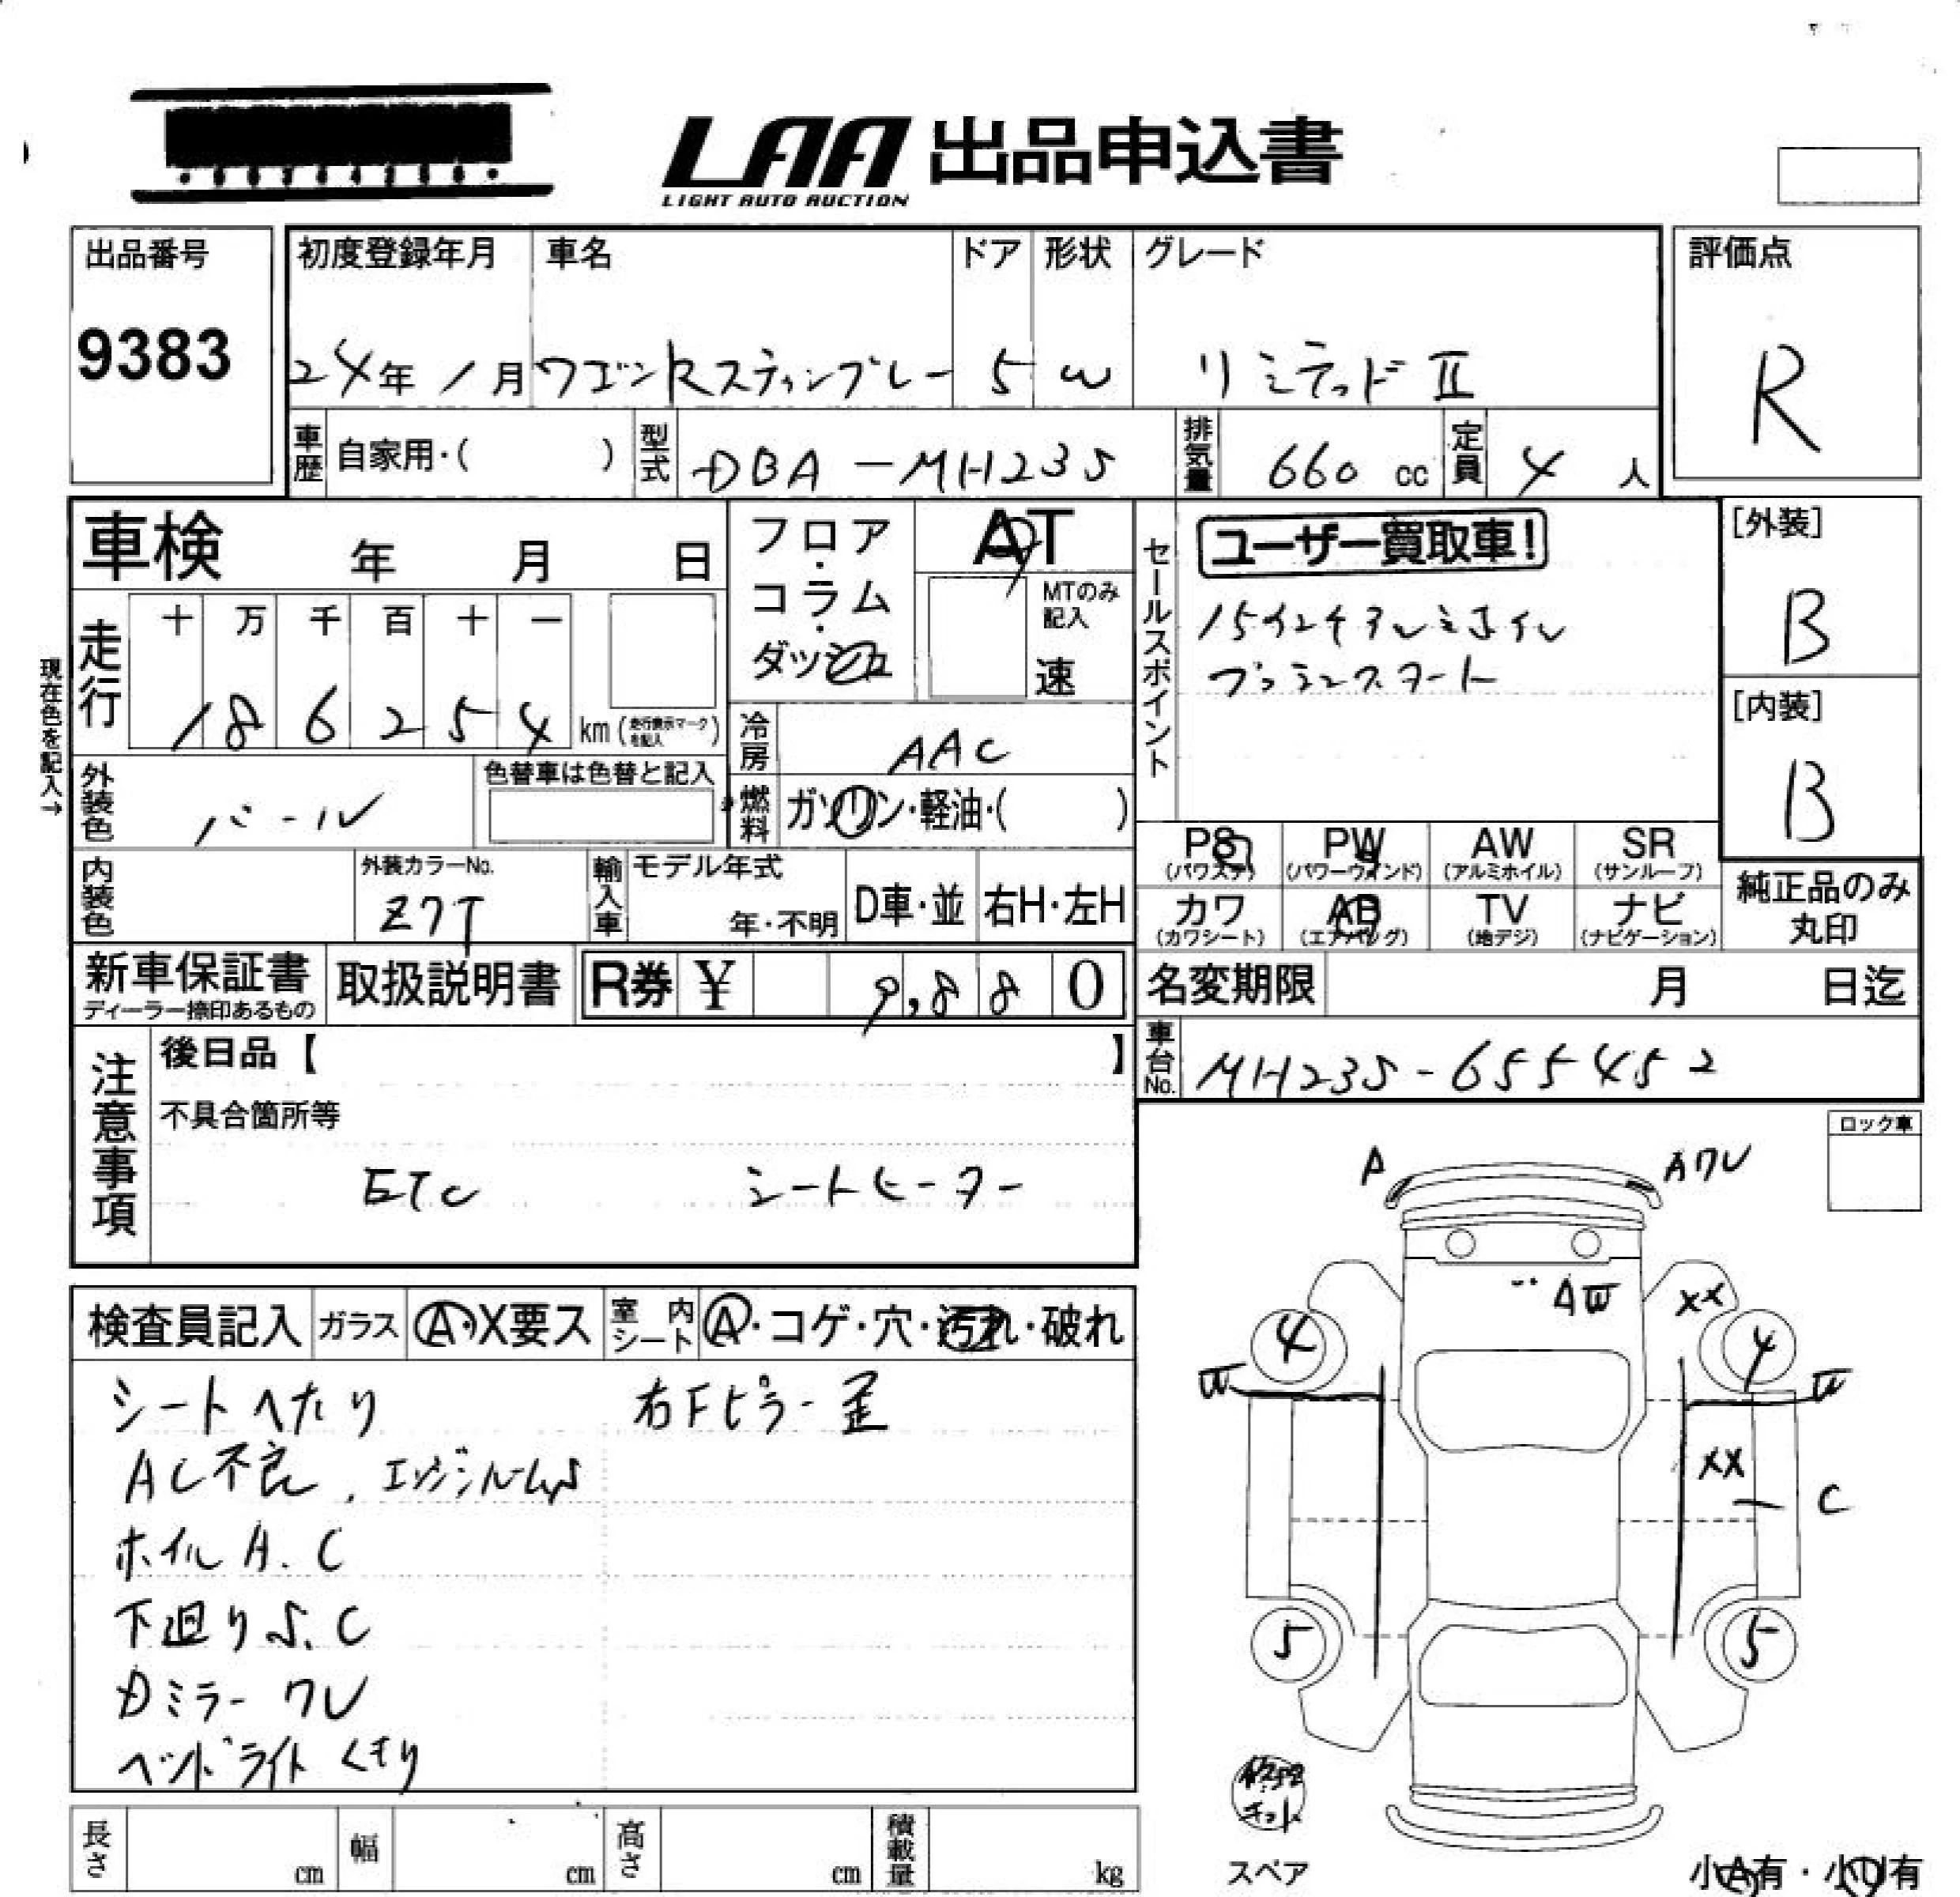 LAA 出品申込書
LIGHT AUTO AUCTION
出品番号
9383
初度登録年月 車名 ドア 形状 グレード
24年 1月 ワゴンRスティングレー 5 W リミテッドⅡ
評価点
R
車歴 自家用・( ) 型式 DBA-MH23S 排気量 660 cc 定員 4 人
車検 年 月 日
フロア・コラム・ダッシュ
AT
MTのみ記入
速
セールスポイント
ユーザー買取車!
15インチアルミホイル
プッシュスタート
[外装]
B
[内装]
B
現在色を記入→
走行 十 万 千 百 十 一
1 8 6 2 5 4 km (走行表示マークを記入)
冷房 AAC
外装色 パール
色替車は色替と記入
燃料 ガソリン・軽油・( )
PS (パワステ) PW (パワーウインド) AW (アルミホイル) SR (サンルーフ)
カワ (カワシート) AB (エアバッグ) TV (地デジ) ナビ (ナビゲーション)
純正品のみ
丸印
内装色 外装カラーNo.
Z7T
輸入車 モデル年式
年・不明 D車・並 右H・左H
新車保証書 取扱説明書 R券 ¥ 9,880
ディーラー捺印あるもの
名変期限 月 日迄
車台No. MH23S-655452
注意事項
後日品【 】
不具合箇所等
ETC シートヒーター
ロック車
検査員記入 ガラス A・X要ス 室内シート A・コゲ・穴・汚れ・破れ
シートへたり 右Fピラー歪
AC不良、エンジンルームS
ホイルA.C
下廻りS.C
Dミラー ワレ
ヘッドライトくもり
A Aワレ
AW XX
4 4
W W
XX
C
5 5
修理
キット
スペア
小A有・小U有
長さ cm 幅 cm 高さ cm 積載量 kg